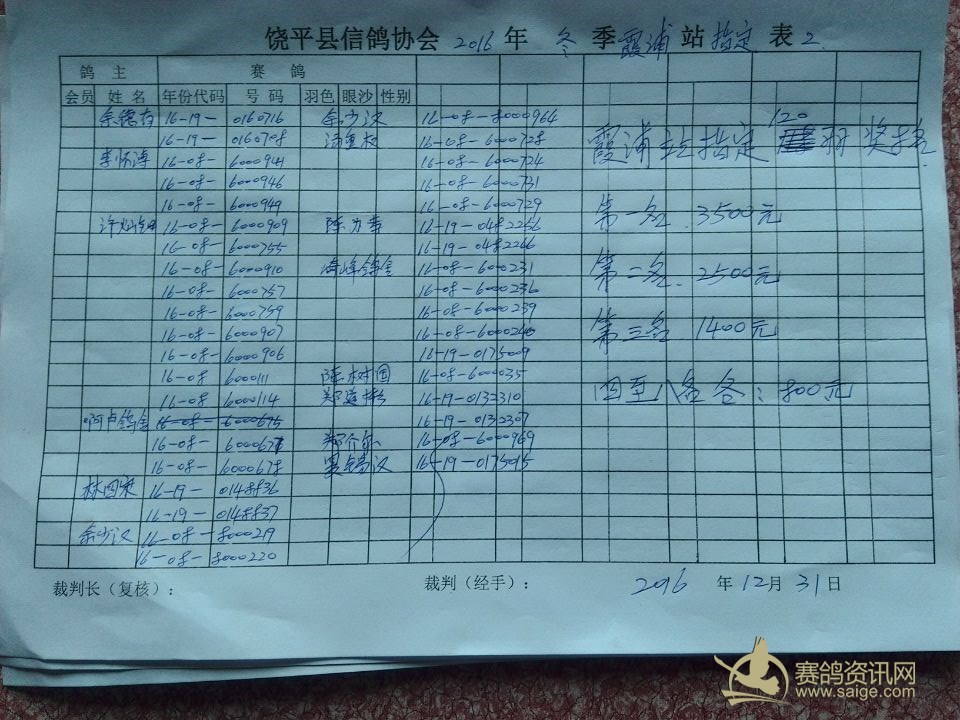 饶平县信鸽协会 2016 年 冬 季 霞浦 站 指定 表 2
鸽主 赛鸽
会员 姓名 年份代码 号码 羽色 眼沙 性别
余德有 16-19- 0160716 余少汉 16-08-8000964
16-19- 0160708 16-08-6000728
李怀涛 16-08- 6000941 16-08-6000724
16-08- 6000946 16-08-6000731
16-08- 6000949 16-08-6000729
16-08- 6000909 陈力华 16-19-0482256
16-08- 6000755 16-19-0482266
16-08- 6000910 海峰鸽舍 16-08-6000231
16-08- 6000757 16-08-6000236
16-08- 6000759 16-08-6000239
16-08- 6000907 16-08-6000240
16-08- 6000906 16-19-0175009
16-08 6000111 陈树国 16-08-6000035
16-08- 6000114 16-19-0132310
啊卢鸽舍 16-08- 6000675 16-19-0132307
16-08- 6000677 16-08-6000969
16-08- 6000678 16-19-0175015
林四荣 16-19- 0148836
16-19- 0148837
余少汉 16-08- 8000219
16-08- 8000220
霞浦站指定 120 羽 奖接
第一名 3500元
第二名 2500元
第三名 1400元
四至八名各:800元
裁判长(复核): 裁判(经手): 2016 年 12 月 31 日
赛鸽资讯网
www.saige.com